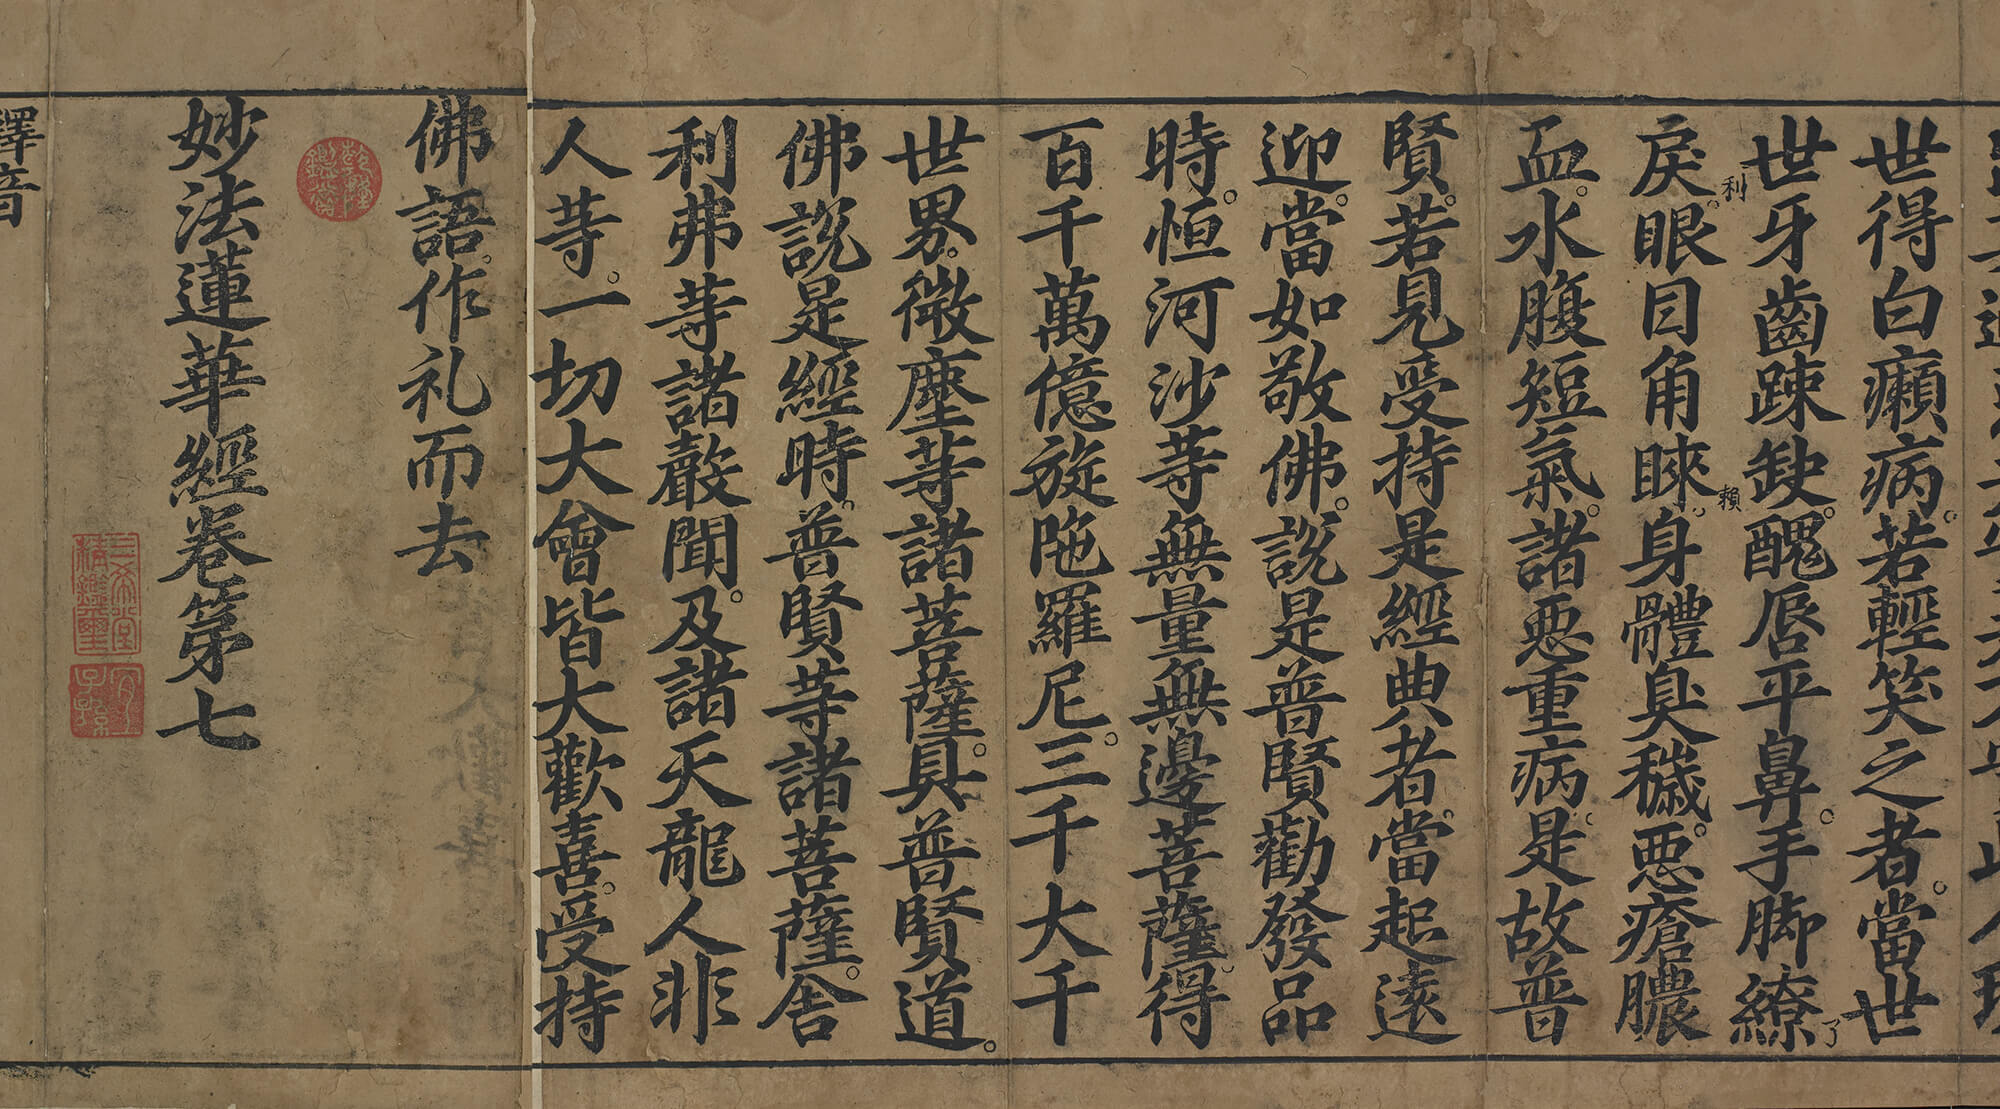 世得白癩病若輕笑之者當世
世牙齒踈缺醜唇平鼻手脚繚了
戾利眼目角睞賴身體臭穢惡瘡膿
血水腹短氣諸惡重病是故普
賢若見受持是經典者當起遠
迎當如敬佛說是普賢勸發品
時恒河沙等無量無邊菩薩得
百千萬億旋陁羅尼三千大千
世界微塵等諸菩薩具普賢道
佛說是經時普賢等諸菩薩舍
利弗等諸聲聞及諸天龍人非
人等一切大會皆大歡喜受持
佛語作礼而去
乾隆鑑賞
妙法蓮華經卷第七
三希堂精鑑璽
宜子孫
釋音